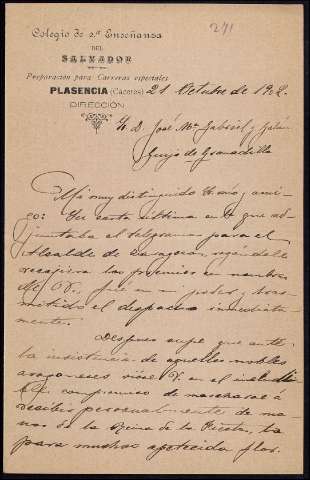 271
Colegio de 2ª Enseñanza
DEL
SALVADOR
Preparación para Carreras especiales
PLASENCIA (Cáceres) 21 Octubre de 1902.
DIRECCIÓN
Sr. D. José Mª Gabriel y Galán
Guijo de Granadilla
Mi muy distinguido Sr. mio y ami-
go: Su carta última en la que ad-
juntaba el telegrama para el
Alcalde de Zaragoza, rogandole
recogiera los premios en nombre
de V., fué en mi poder, y tras-
mitido el despacho inmediata-
mente.
Despues supe que ante
la insistencia de aquellos nobles
aragoneses vióse V. en el ineludi-
ble compromiso de marchar á
recibir personalmente de ma-
nos de la Reina de la Fiesta, la
para muchos apetecida flor.